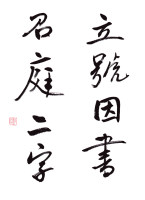 立號因書
召庭二字